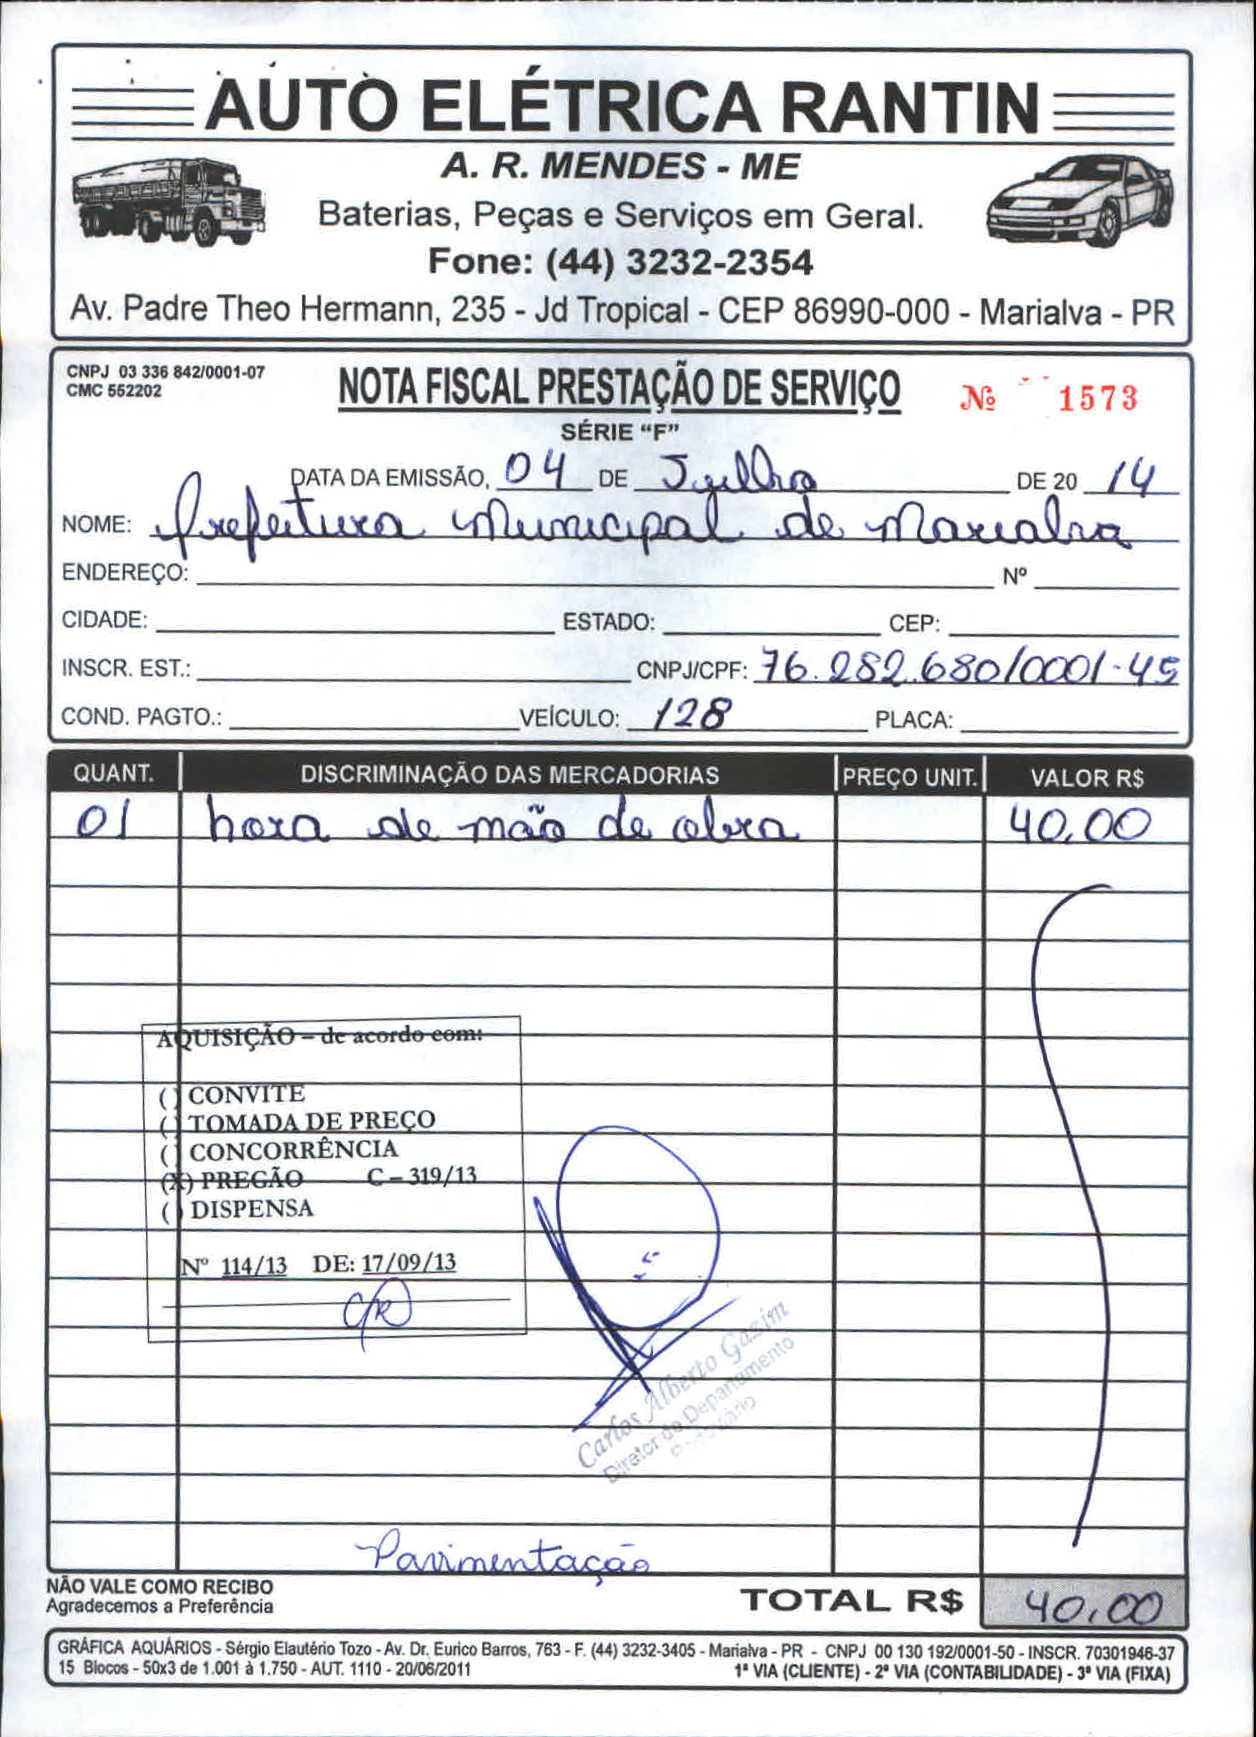 AUTO ELÉTRICA RANTIN
A. R. MENDES - ME
Baterias, Peças e Serviços em Geral.
Fone: (44) 3232-2354
Av. Padre Theo Hermann, 235 - Jd Tropical - CEP 86990-000 - Marialva - PR
CNPJ 03 336 842/0001-07
CMC 552202
NOTA FISCAL PRESTAÇÃO DE SERVIÇO
Nº 1573
SÉRIE "F"
DATA DA EMISSÃO, 04 DE Julho DE 20 14
NOME: Prefeitura Municipal de Marialva
ENDEREÇO: Nº
CIDADE: ESTADO: CEP:
INSCR. EST.: CNPJ/CPF: 76.282.680/0001-45
COND. PAGTO.: VEÍCULO: 128 PLACA:
QUANT. DISCRIMINAÇÃO DAS MERCADORIAS PREÇO UNIT. VALOR R$
01 hora de mão de obra 40,00
AQUISIÇÃO – de acordo com:
( ) CONVITE
( ) TOMADA DE PREÇO
( ) CONCORRÊNCIA
(X) PREGÃO C – 319/13
( ) DISPENSA
Nº 114/13 DE: 17/09/13
Carlos Alberto Gazim
Diretor de Departamento
Pavimentação
NÃO VALE COMO RECIBO
Agradecemos a Preferência
TOTAL R$ 40,00
GRÁFICA AQUÁRIOS - Sérgio Elautério Tozo - Av. Dr. Eurico Barros, 763 - F. (44) 3232-3405 - Marialva - PR - CNPJ 00 130 192/0001-50 - INSCR. 70301946-37
15 Blocos - 50x3 de 1.001 à 1.750 - AUT. 1110 - 20/06/2011 1ª VIA (CLIENTE) - 2ª VIA (CONTABILIDADE) - 3ª VIA (FIXA)